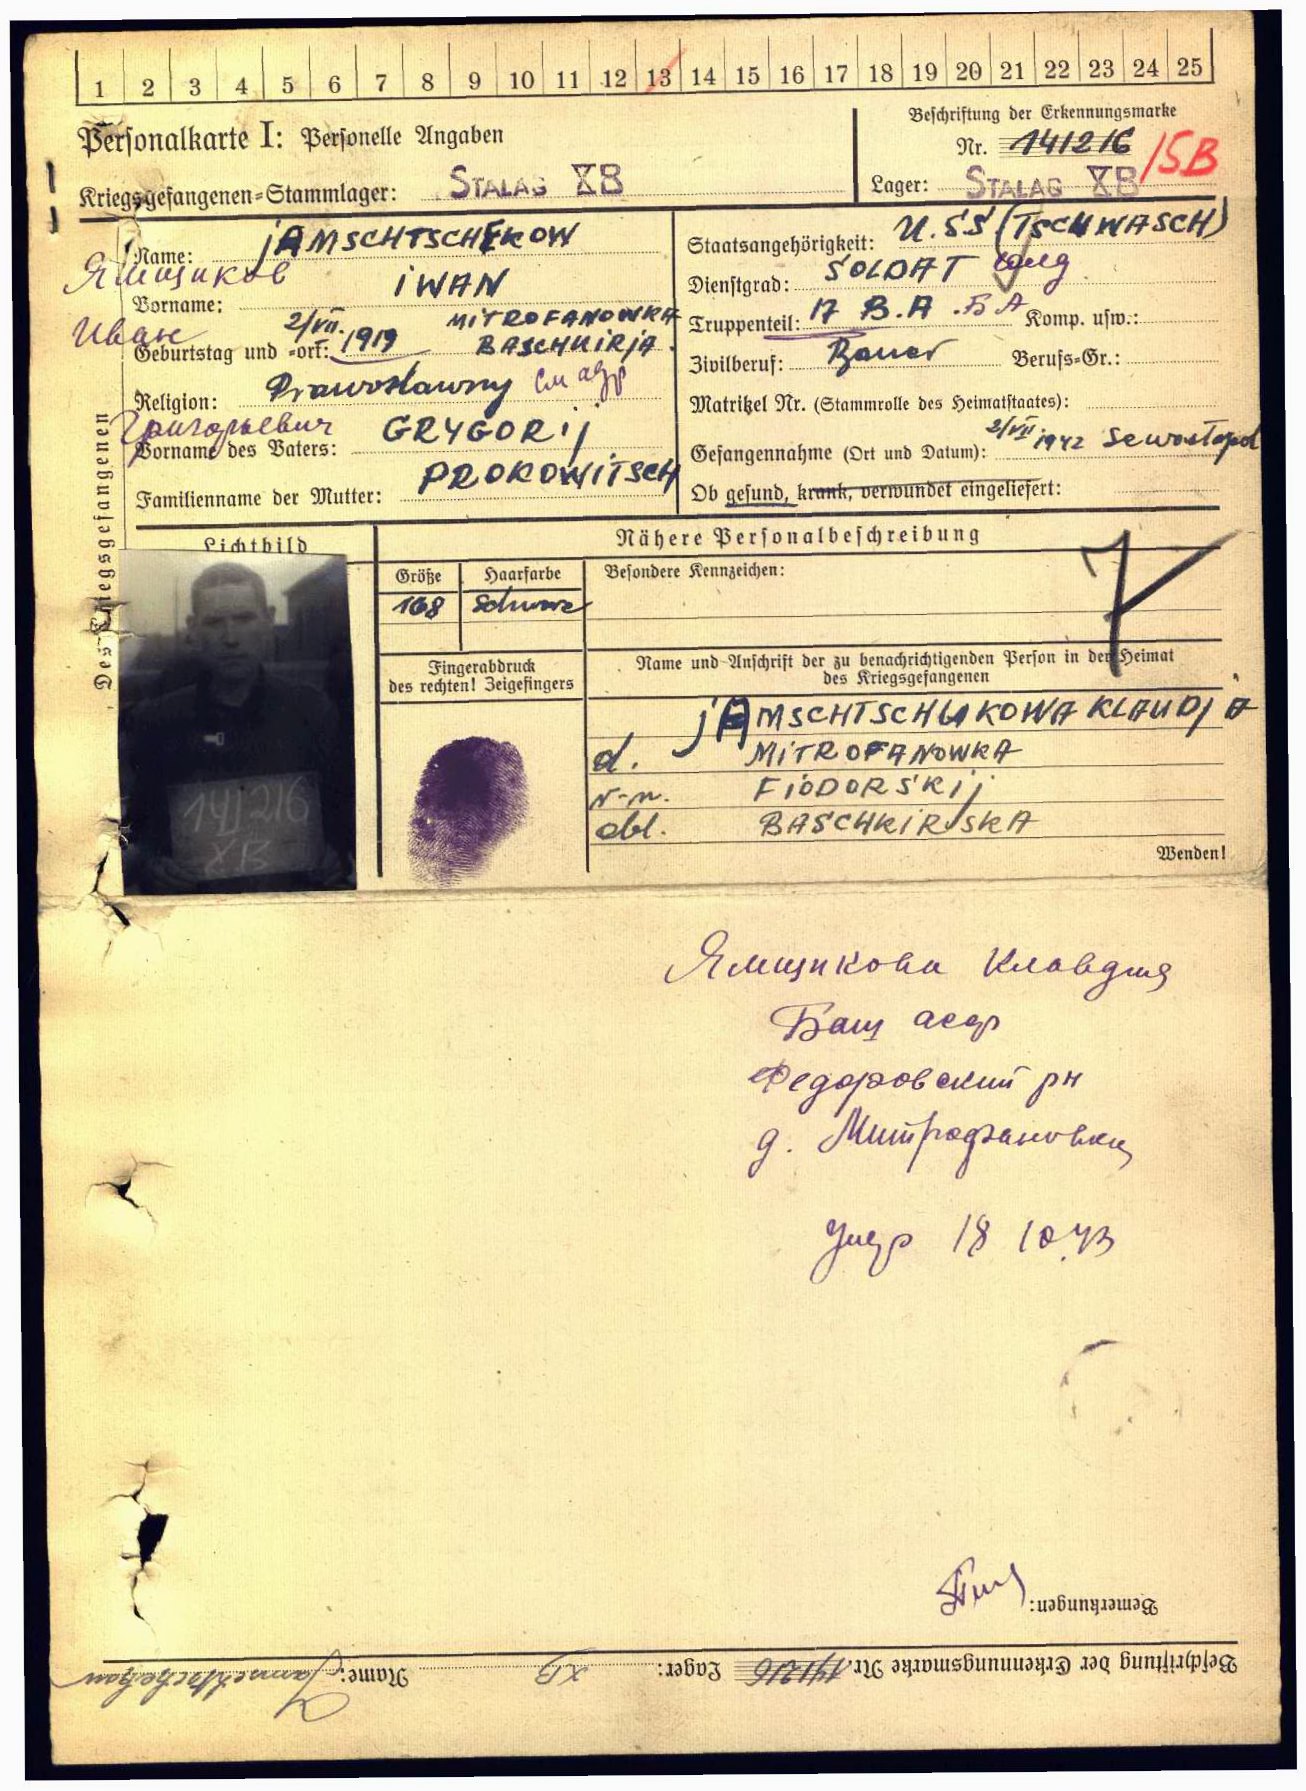 1 2 3 4 5 6 7 8 9 10 11 12 13 14 15 16 17 18 19 20 21 22 23 24 25
Personalkarte I: Personelle Angaben
Beschriftung der Erkennungsmarke
Nr. 141216
Kriegsgefangenen=Stammlager: STALAG XB
Lager: STALAG XB
/5B
Des Kriegsgefangenen
Name: jAMSCHTSCHEKOW
Ямщиков
Vorname: iWAN
Иван
Geburtstag und =ort: 2/VII. 1919 MiTROFANOWKA
BASCHKiRjA.
Religion: Prawosławny
Григорьевич
Vorname des Vaters: GRYGORij
Familienname der Mutter: PROKOWiTSCH
Staatsangehörigkeit: U.SS (TSCHWASCH)
Dienstgrad: SOLDAT
Truppenteil: 17 B.A .БА Komp. usw.:
Zivilberuf: Bauer Berufs=Gr.:
Matrikel Nr. (Stammrolle des Heimatstaates):
Gefangennahme (Ort und Datum): 2/VII 1942 Sewastopol
Ob gesund, krank, verwundet eingeliefert:
Lichtbild
Nähere Personalbeschreibung
Größe Haarfarbe Besondere Kennzeichen:
168 Schwarz
Fingerabdruck
des rechten! Zeigefingers
Name und Anschrift der zu benachrichtigenden Person in der Heimat
des Kriegsgefangenen
jAMSCHTSCHiKOWA KLAUDjA
d. MiTROFANOWKA
r-n. FiODORSKij
obl. BASCHKiRSKA
141216
XB
Wenden!
Ямщикова Клавдия
Баш асср
Федоровский рн
д. Митрофановка
Умер 18 10.43
Bemerkungen:
Beschriftung der Erkennungsmarke Nr. 141216 Lager: XB Name: Jamschtschekow